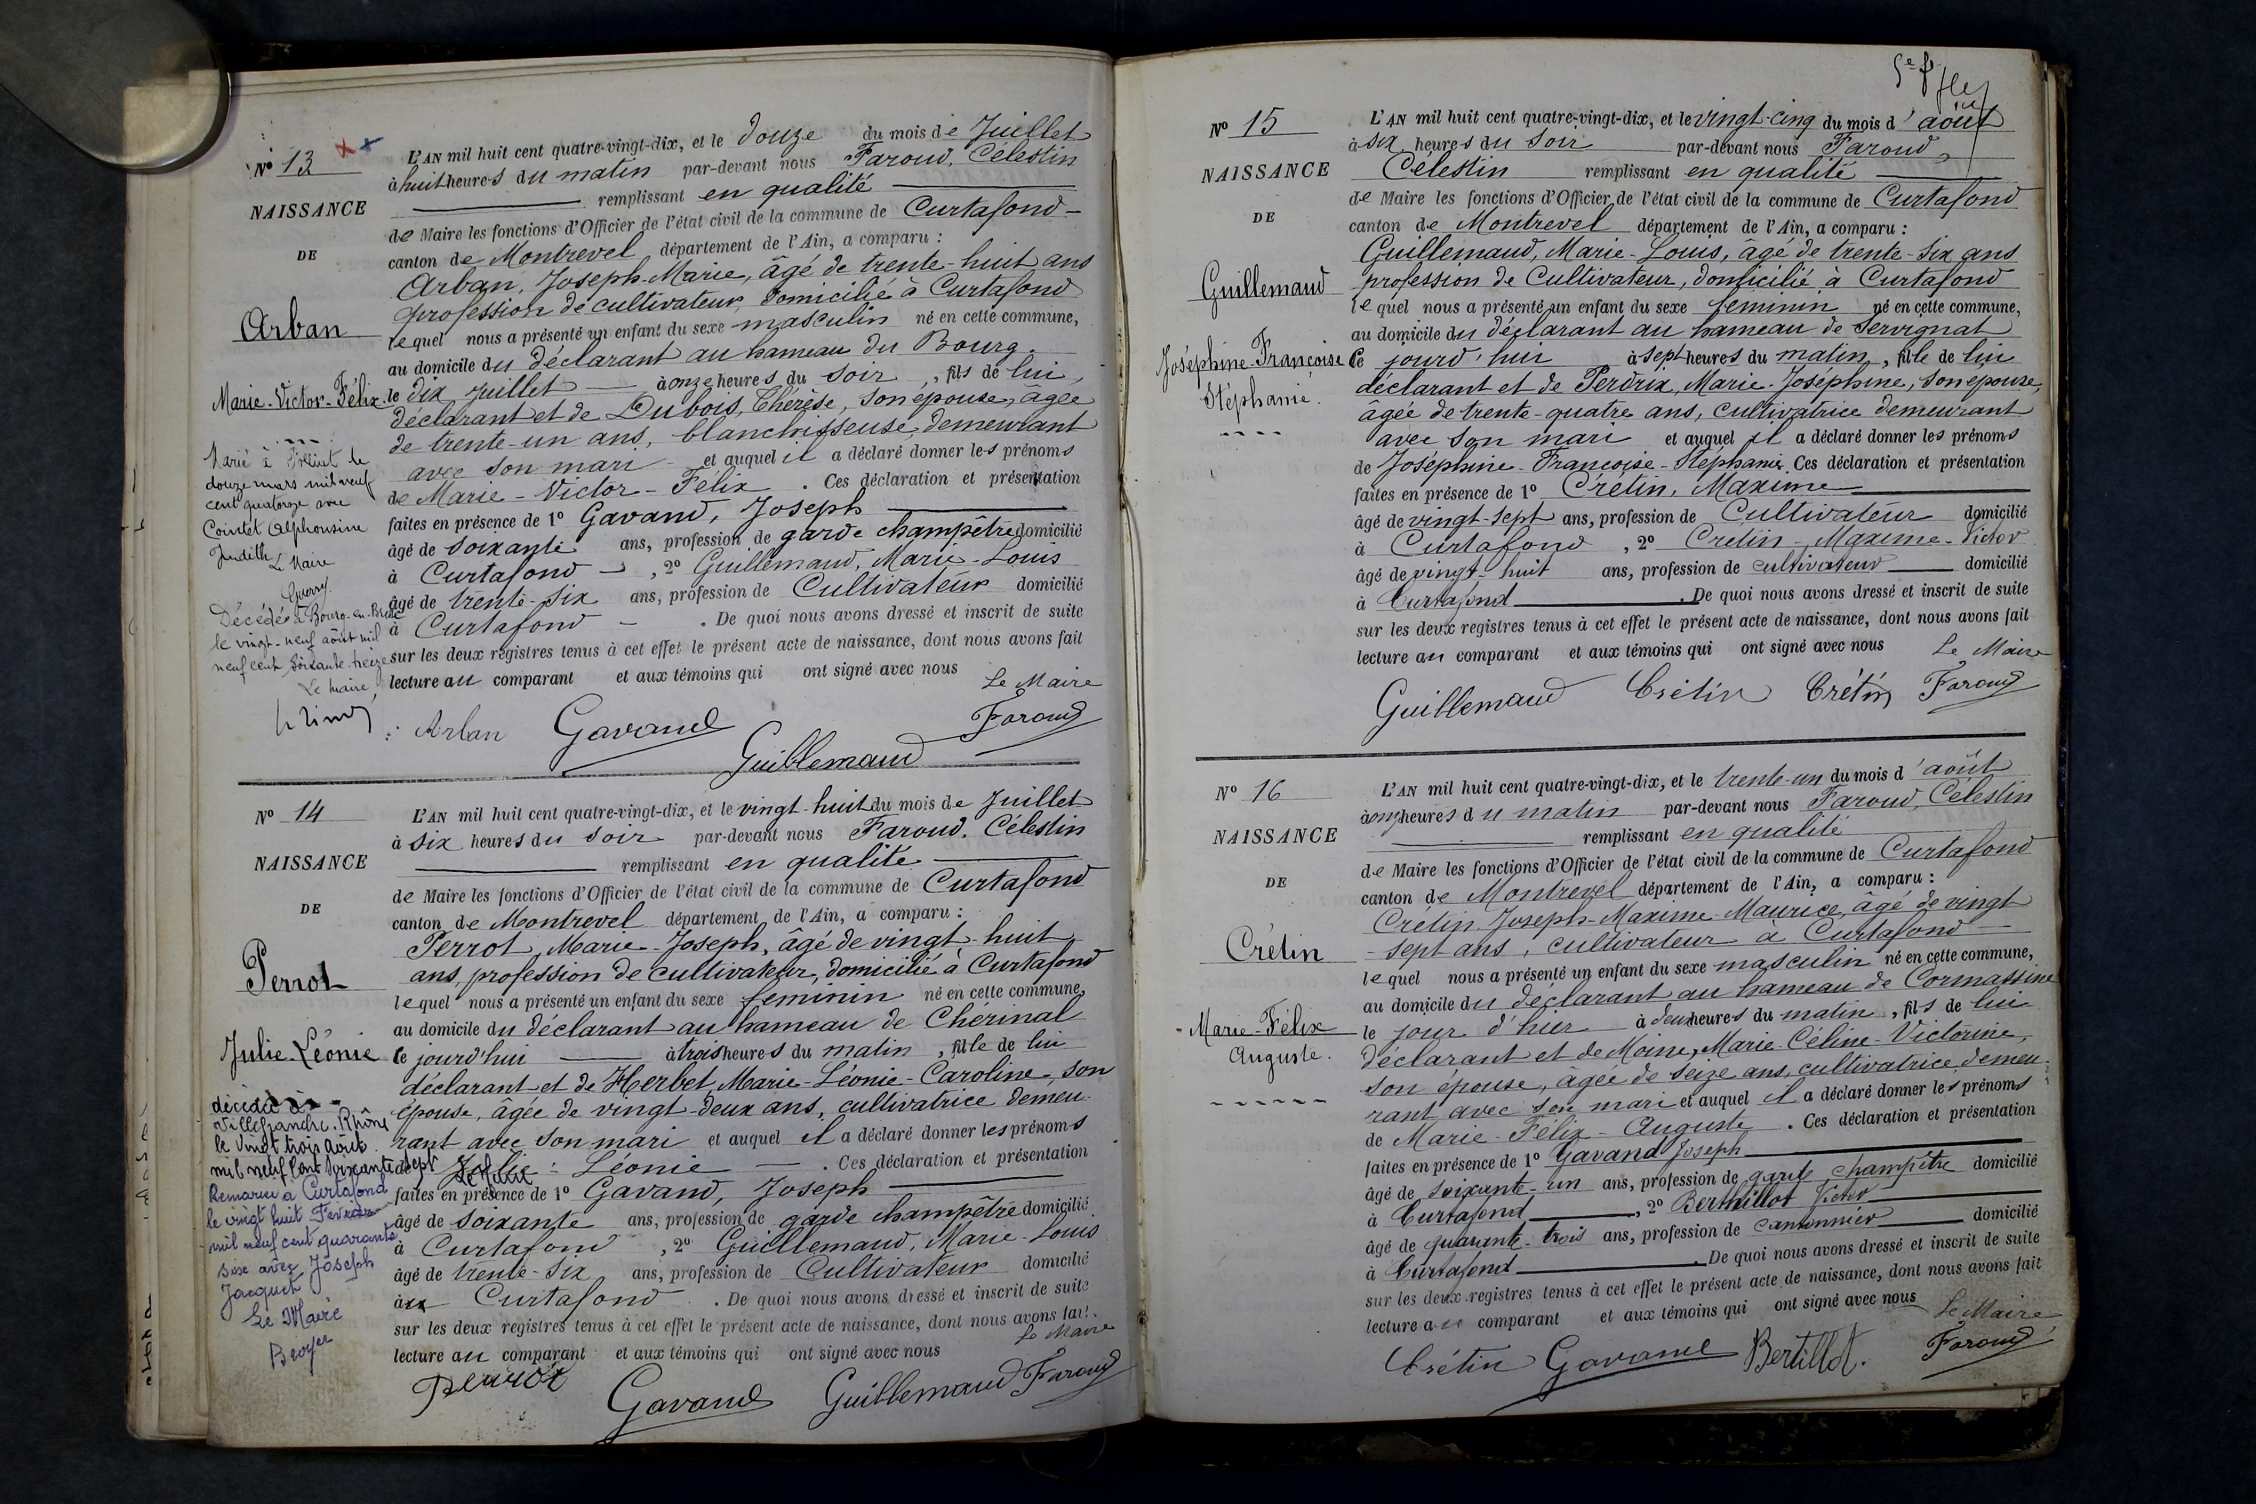 Nº 13
NAISSANCE
DE
Arban
Marie-Victor-Félix
Marié à le
douze mars mil neuf
cent quatorze avec
Cointet Alphonsine
Judith
Le Maire
Décédé à Bourg-en-Bresse
le vingt-neuf août mil
neuf cent soixante treize
Le maire,
L'AN mil huit cent quatre-vingt-dix, et le douze du mois de Juillet
à huit heures du matin par-devant nous Faroud, Célestin
remplissant en qualité
de Maire les fonctions d'Officier de l'état civil de la commune de Curtafond
canton de Montrevel département de l'Ain, a comparu :
Arban, Joseph-Marie, âgé de trente-huit ans
profession de cultivateur, domicilié à Curtafond
lequel nous a présenté un enfant du sexe masculin né en cette commune,
au domicile du déclarant au hameau du Bourg.
le dix juillet à onze heures du soir, fils de lui,
déclarant et de Dubois, Thérèse, son épouse, âgée
de trente-un ans, blanchisseuse, demeurant
avec son mari et auquel il a déclaré donner les prénoms
de Marie-Victor-Félix. Ces déclaration et présentation
faites en présence de 1º Gavand, Joseph
âgé de soixante ans, profession de garde champêtre domicilié
à Curtafond, 2º Guillemaud, Marie-Louis
âgé de trente-six ans, profession de Cultivateur domicilié
à Curtafond. De quoi nous avons dressé et inscrit de suite
sur les deux registres tenus à cet effet le présent acte de naissance, dont nous avons fait
lecture au comparant et aux témoins qui ont signé avec nous
Le Maire
Arban Gavand Guillemaud Faroud
Nº 14
NAISSANCE
DE
Perrot
Julie-Léonie
décédée à
Villefranche-Rhône
le vingt trois août
mil neuf cent soixante sept
Remariée à Curtafond
le vingt huit Février
mil neuf cent quarante
six avec Joseph
Jacquet
Le Maire
Boyer
L'AN mil huit cent quatre-vingt-dix, et le vingt-huit du mois de Juillet
à six heures du soir par-devant nous Faroud, Célestin
remplissant en qualité
de Maire les fonctions d'Officier de l'état civil de la commune de Curtafond
canton de Montrevel département de l'Ain, a comparu :
Perrot, Marie-Joseph, âgé de vingt-huit
ans, profession de cultivateur, domicilié à Curtafond
lequel nous a présenté un enfant du sexe féminin né en cette commune,
au domicile du déclarant au hameau de Chérinal
ce jourd'hui à trois heures du matin, fille de lui
déclarant et de Herbet, Marie-Léonie-Caroline, son
épouse, âgée de vingt-deux ans, cultivatrice demeu-
rant avec son mari et auquel il a déclaré donner les prénoms
de Julie-Léonie. Ces déclaration et présentation
faites en présence de 1º Gavand, Joseph
âgé de soixante ans, profession de garde champêtre domicilié
à Curtafond, 2º Guillemaud, Marie-Louis
âgé de trente-six ans, profession de Cultivateur domicilié
à Curtafond. De quoi nous avons dressé et inscrit de suite
sur les deux registres tenus à cet effet le présent acte de naissance, dont nous avons fait
lecture au comparant et aux témoins qui ont signé avec nous
Le Maire
Perrot Gavand Guillemaud Faroud
Nº 15
NAISSANCE
DE
Guillemaud
Joséphine-Françoise
Stéphanie.
L'AN mil huit cent quatre-vingt-dix, et le vingt-cinq du mois d'août
à six heures du soir par-devant nous Faroud,
Célestin remplissant en qualité
de Maire les fonctions d'Officier de l'état civil de la commune de Curtafond
canton de Montrevel département de l'Ain, a comparu :
Guillemaud, Marie-Louis, âgé de trente-six ans
profession de Cultivateur, domicilié à Curtafond
lequel nous a présenté un enfant du sexe féminin né en cette commune,
au domicile du déclarant au hameau de Servignat
ce jourd'hui à sept heures du matin, fille de lui
déclarant et de Perdrix, Marie-Joséphine, son épouse,
âgée de trente-quatre ans, cultivatrice demeurant
avec son mari et auquel il a déclaré donner les prénoms
de Joséphine-Françoise-Stéphanie. Ces déclaration et présentation
faites en présence de 1º Crétin, Maxime
âgé de vingt-sept ans, profession de Cultivateur domicilié
à Curtafond, 2º Crétin-Maxime-Victor
âgé de vingt-huit ans, profession de cultivateur domicilié
à Curtafond. De quoi nous avons dressé et inscrit de suite
sur les deux registres tenus à cet effet le présent acte de naissance, dont nous avons fait
lecture au comparant et aux témoins qui ont signé avec nous
Le Maire
Guillemaud Crétin Crétin Faroud
Nº 16
NAISSANCE
DE
Crétin
Marie-Félix
Auguste.
L'AN mil huit cent quatre-vingt-dix, et le trente-un du mois d'août
à onze heures du matin par-devant nous Faroud, Célestin
remplissant en qualité
de Maire les fonctions d'Officier de l'état civil de la commune de Curtafond
canton de Montrevel département de l'Ain, a comparu :
Crétin Joseph-Maxime-Maurice, âgé de vingt
-sept ans, cultivateur à Curtafond
lequel nous a présenté un enfant du sexe masculin né en cette commune,
au domicile du déclarant au hameau de Cormassine
le jour d'hier à deux heures du matin, fils de lui
déclarant et de Moine, Marie-Céline-Victorine,
son épouse, âgée de seize ans, cultivatrice, demeu-
rant avec son mari et auquel il a déclaré donner les prénoms
de Marie-Félix-Auguste. Ces déclaration et présentation
faites en présence de 1º Gavand Joseph
âgé de soixante-un ans, profession de garde champêtre domicilié
à Curtafond, 2º Berthillot Victor
âgé de quarante-trois ans, profession de cantonnier domicilié
à Curtafond. De quoi nous avons dressé et inscrit de suite
sur les deux registres tenus à cet effet le présent acte de naissance, dont nous avons fait
lecture au comparant et aux témoins qui ont signé avec nous
Le Maire
Crétin Gavand Bertillot. Faroud